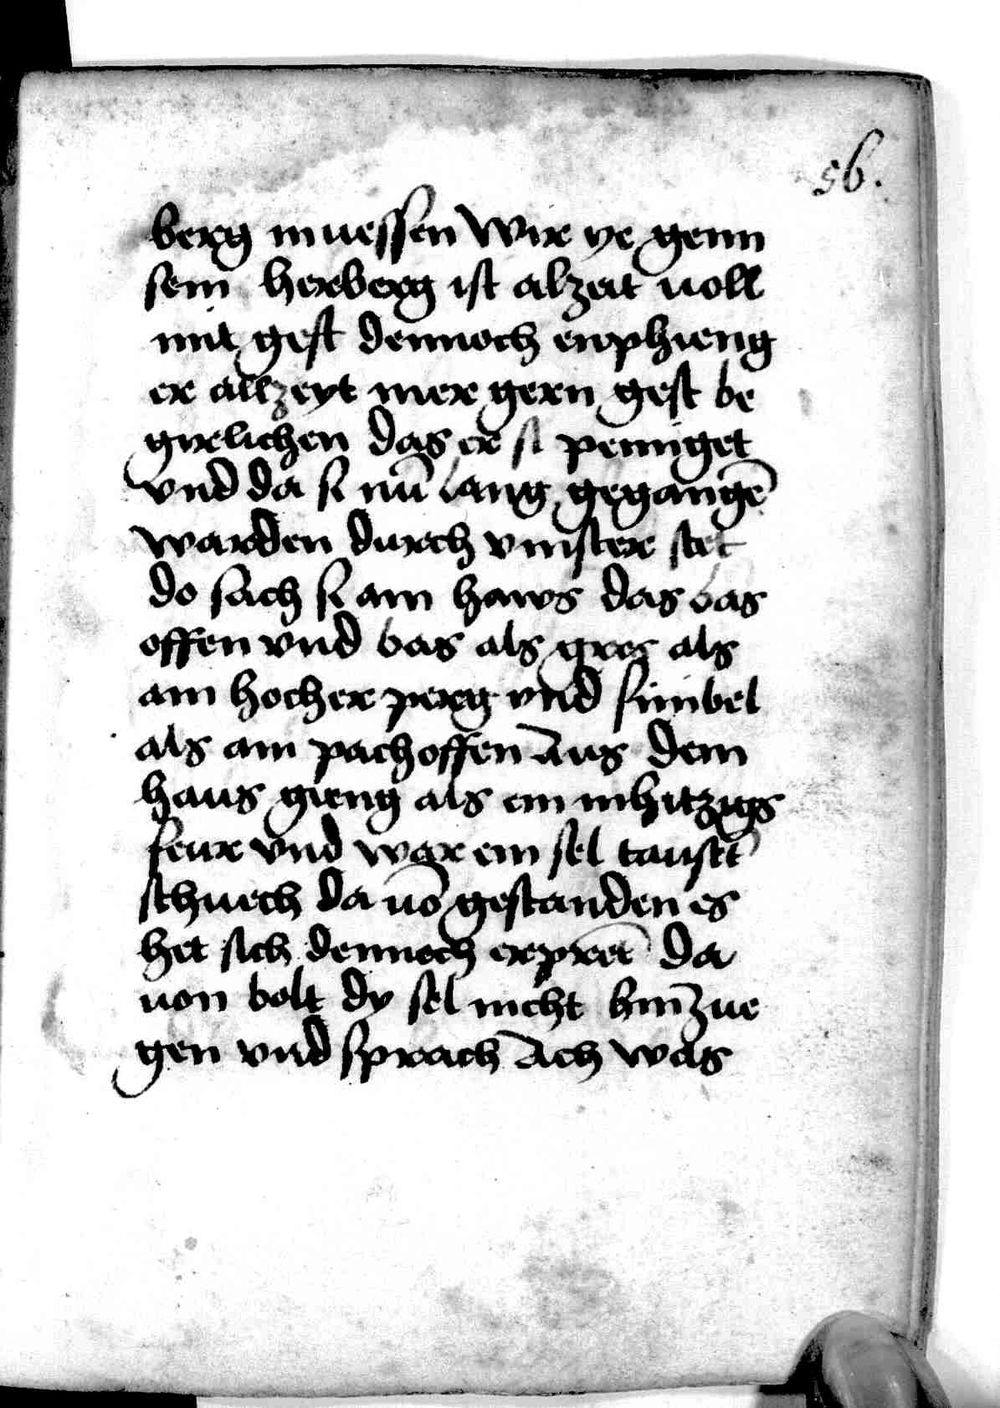 56.
berg muessen wir ye genn
sein herberg ist alzeit uoll
mit gest dennoch emphieng
er allzeyt mer gern gest be
girlichen das er si peiniget
vnd da si nū lang gegangē
warden durch vinster stet
do sach si ain haws das bas
offen vnd bas als gros als
ain hocher perg vnd sinbel
als ain pachoffen Aus dem
haus gieng als ein inhitzigs
feur vnd wer ein sel taustt
schuech da uō gestanden es
het sich dennoch erpret da
uon bolt dy sel nicht hinzue
gen vnd sprach Ach was